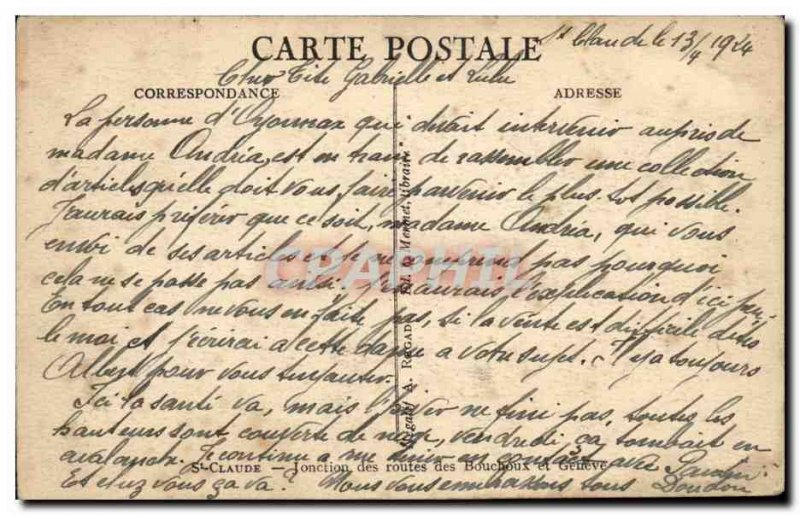 CARTE POSTALE
St Claude le 13/4 1924
Cher Tite Gabrielle et Lulu
CORRESPONDANCE
ADRESSE
La personne d'Oyonnax qui devait intervenir auprès de
madame Andréa, est en train de rassembler une collection
d'articles qu'elle doit vous faire parvenir le plus tôt possible.
J'aurais préférer que ce soit, madame Andréa, qui vous
envoi de ses articles et je ne comprend pas pourquoi
cela ne se passe pas ainsi; j'aurais l'explication d'ici peu.
En tout cas ne vous en faite pas, si la vente est difficile dites
le moi et j'écrirai a cette dame a votre sujet. Il y a toujours
Albert pour vous
Ici la santé va, mais l'hiver ne fini pas, toutes les
hauteurs sont couverte de neige, vendredi ça tombait en
avalanche. Je continue a me tenir en contact avec
St-CLAUDE — Jonction des routes des Bouchoux et Genève
Et chez vous ça va? Nous vous embrassons tous Doudou
A. RAGADE
CPAPHIL